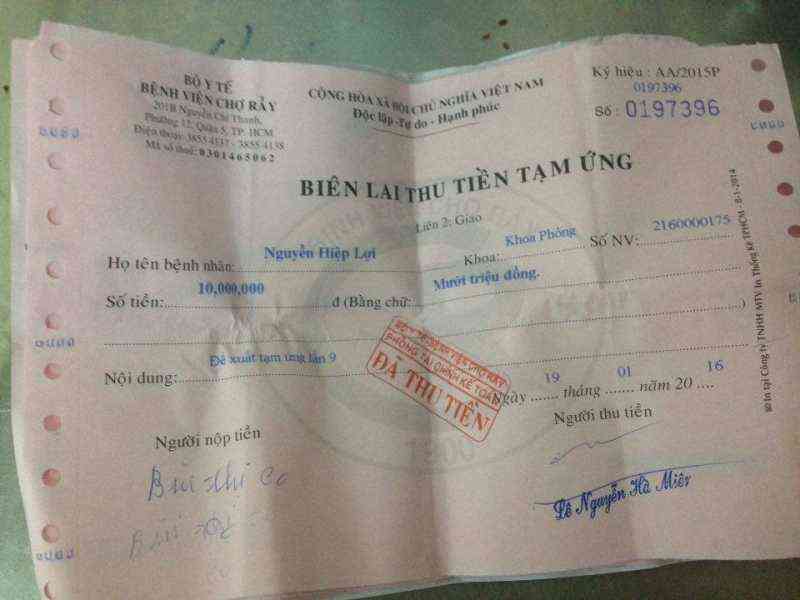 BỘ Y TẾ
BỆNH VIỆN CHỢ RẪY
201B Nguyễn Chí Thanh,
Phường 12, Quận 5, TP- HCM
Điện thoại: 3855 4137 - 3855 4138
Mã số thuế: 0301465062
CỘNG HÒA XÃ HỘI CHỦ NGHĨA VIỆT NAM
Độc lập -Tự do - Hạnh phúc
Ký hiệu : AA/2015P
0197396
Số : 0197396
BIÊN LAI THU TIỀN TẠM ỨNG
Liên 2: Giao
Họ tên bệnh nhân: Nguyễn Hiệp Lợi Khoa: Khoa Phòng Số NV: 2160000175
Số tiền: 10,000,000 đ (Bằng chữ: Mười triệu đồng. )
Nội dung: Đề xuất tạm ứng lần 9
BỘ Y TẾ BỆNH VIỆN CHỢ RẪY
PHÒNG TÀI CHÍNH KẾ TOÁN
ĐÃ THU TIỀN
Ngày 19 tháng 01 năm 20 16
Người nộp tiền
Người thu tiền
Bùi
Lê Nguyễn Hà Miên
In tại Công ty TNHH MTV In Thống Kê TPHCM - 8-1-2014